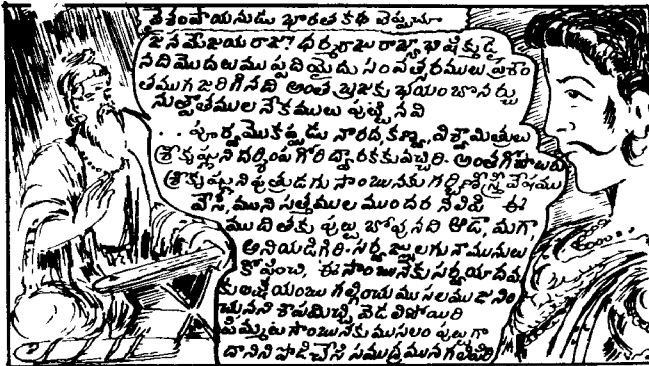 వైశంపాయనుడు భారతకథ చెప్పుచూ
జనమేజయ రాజా! ధర్మరాజు రాజ్యాభిషిక్తుడై
నది మొదలు ముప్పదియైదు సంవత్సరములు ప్రశాం
తముగ జరిగినది అంత ప్రజకు భయం బొనర్చు
నుత్పాతము లనేకములు పుట్టినవి
.. పూర్వమొకప్పుడు నారద కణ్వ, విశ్వామిత్రులు
శ్రీకృష్ణుని దర్శింప గోరి ద్వారకకు వచ్చిరి- అంత
శ్రీకృష్ణుని పుత్రుడగు సాంబునకు గర్భిణీస్త్రీ వేషము
వేసి, ముని సత్తముల ముందర నిలిపి ఈ
ముదితకు పుట్ట బోవునది ఆడా, మగా,
అని యడిగిరి- సర్వజ్ఞులగు నా మునులు
కోపించి, ఈ సాంబునకు సర్వ యాదవ
కులక్షయంబు గల్గించు ముసలము జనిం
చునని శాపమిచ్చి వెడలిపోయిరి
పిమ్మట సాంబునకు ముసలం పుట్టగా
దానిని పొడిచేసి సముద్రమున గలిపిరి